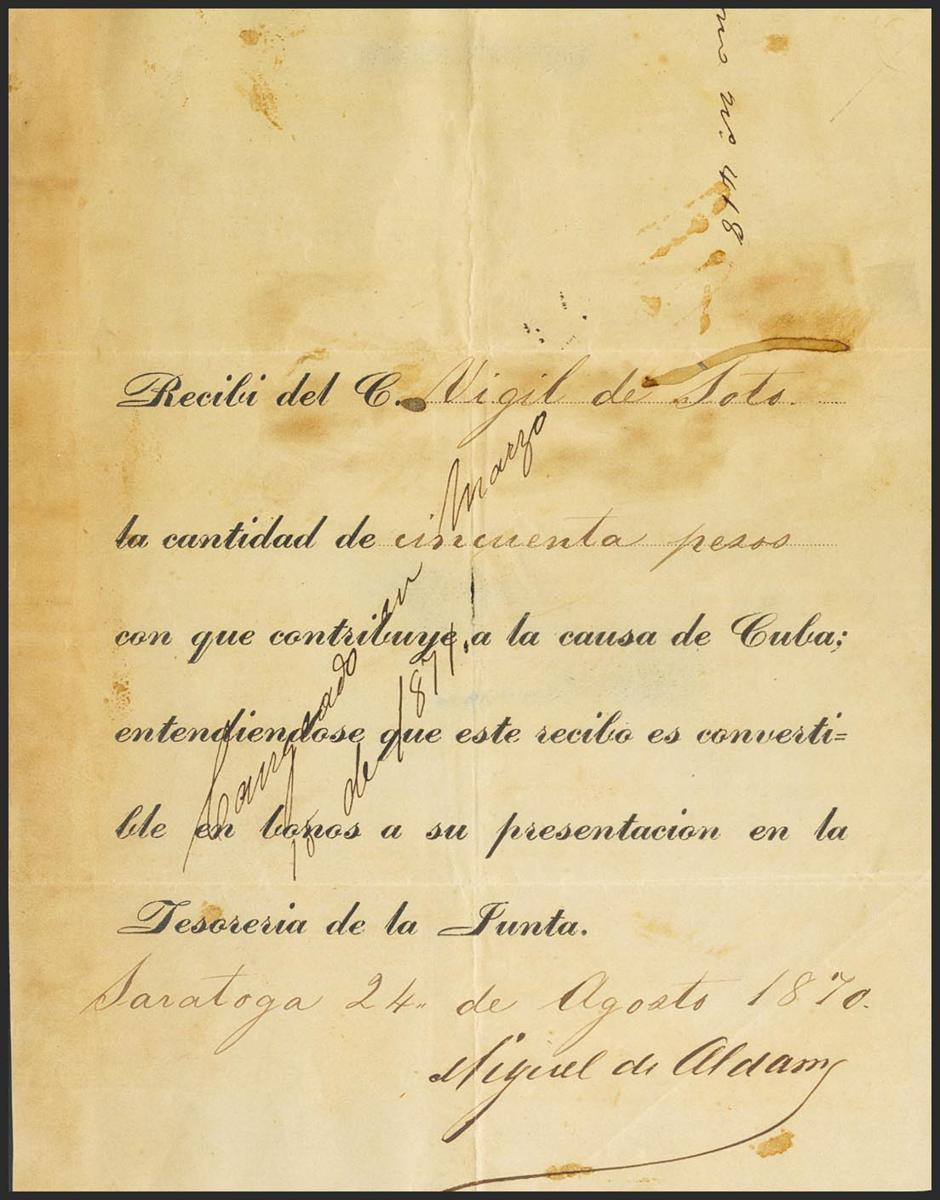 no. 418
Recibi del C. Vigil de Soto.
la cantidad de cincuenta pesos
con que contribuye a la causa de Cuba;
entendiendose que este recibo es converti=
ble en bonos a su presentacion en la
Tesoreria de la Junta.
Saratoga 24 de Agosto 1870.
Miguel de Aldama
Cangeado en Marzo
18 de 1871.